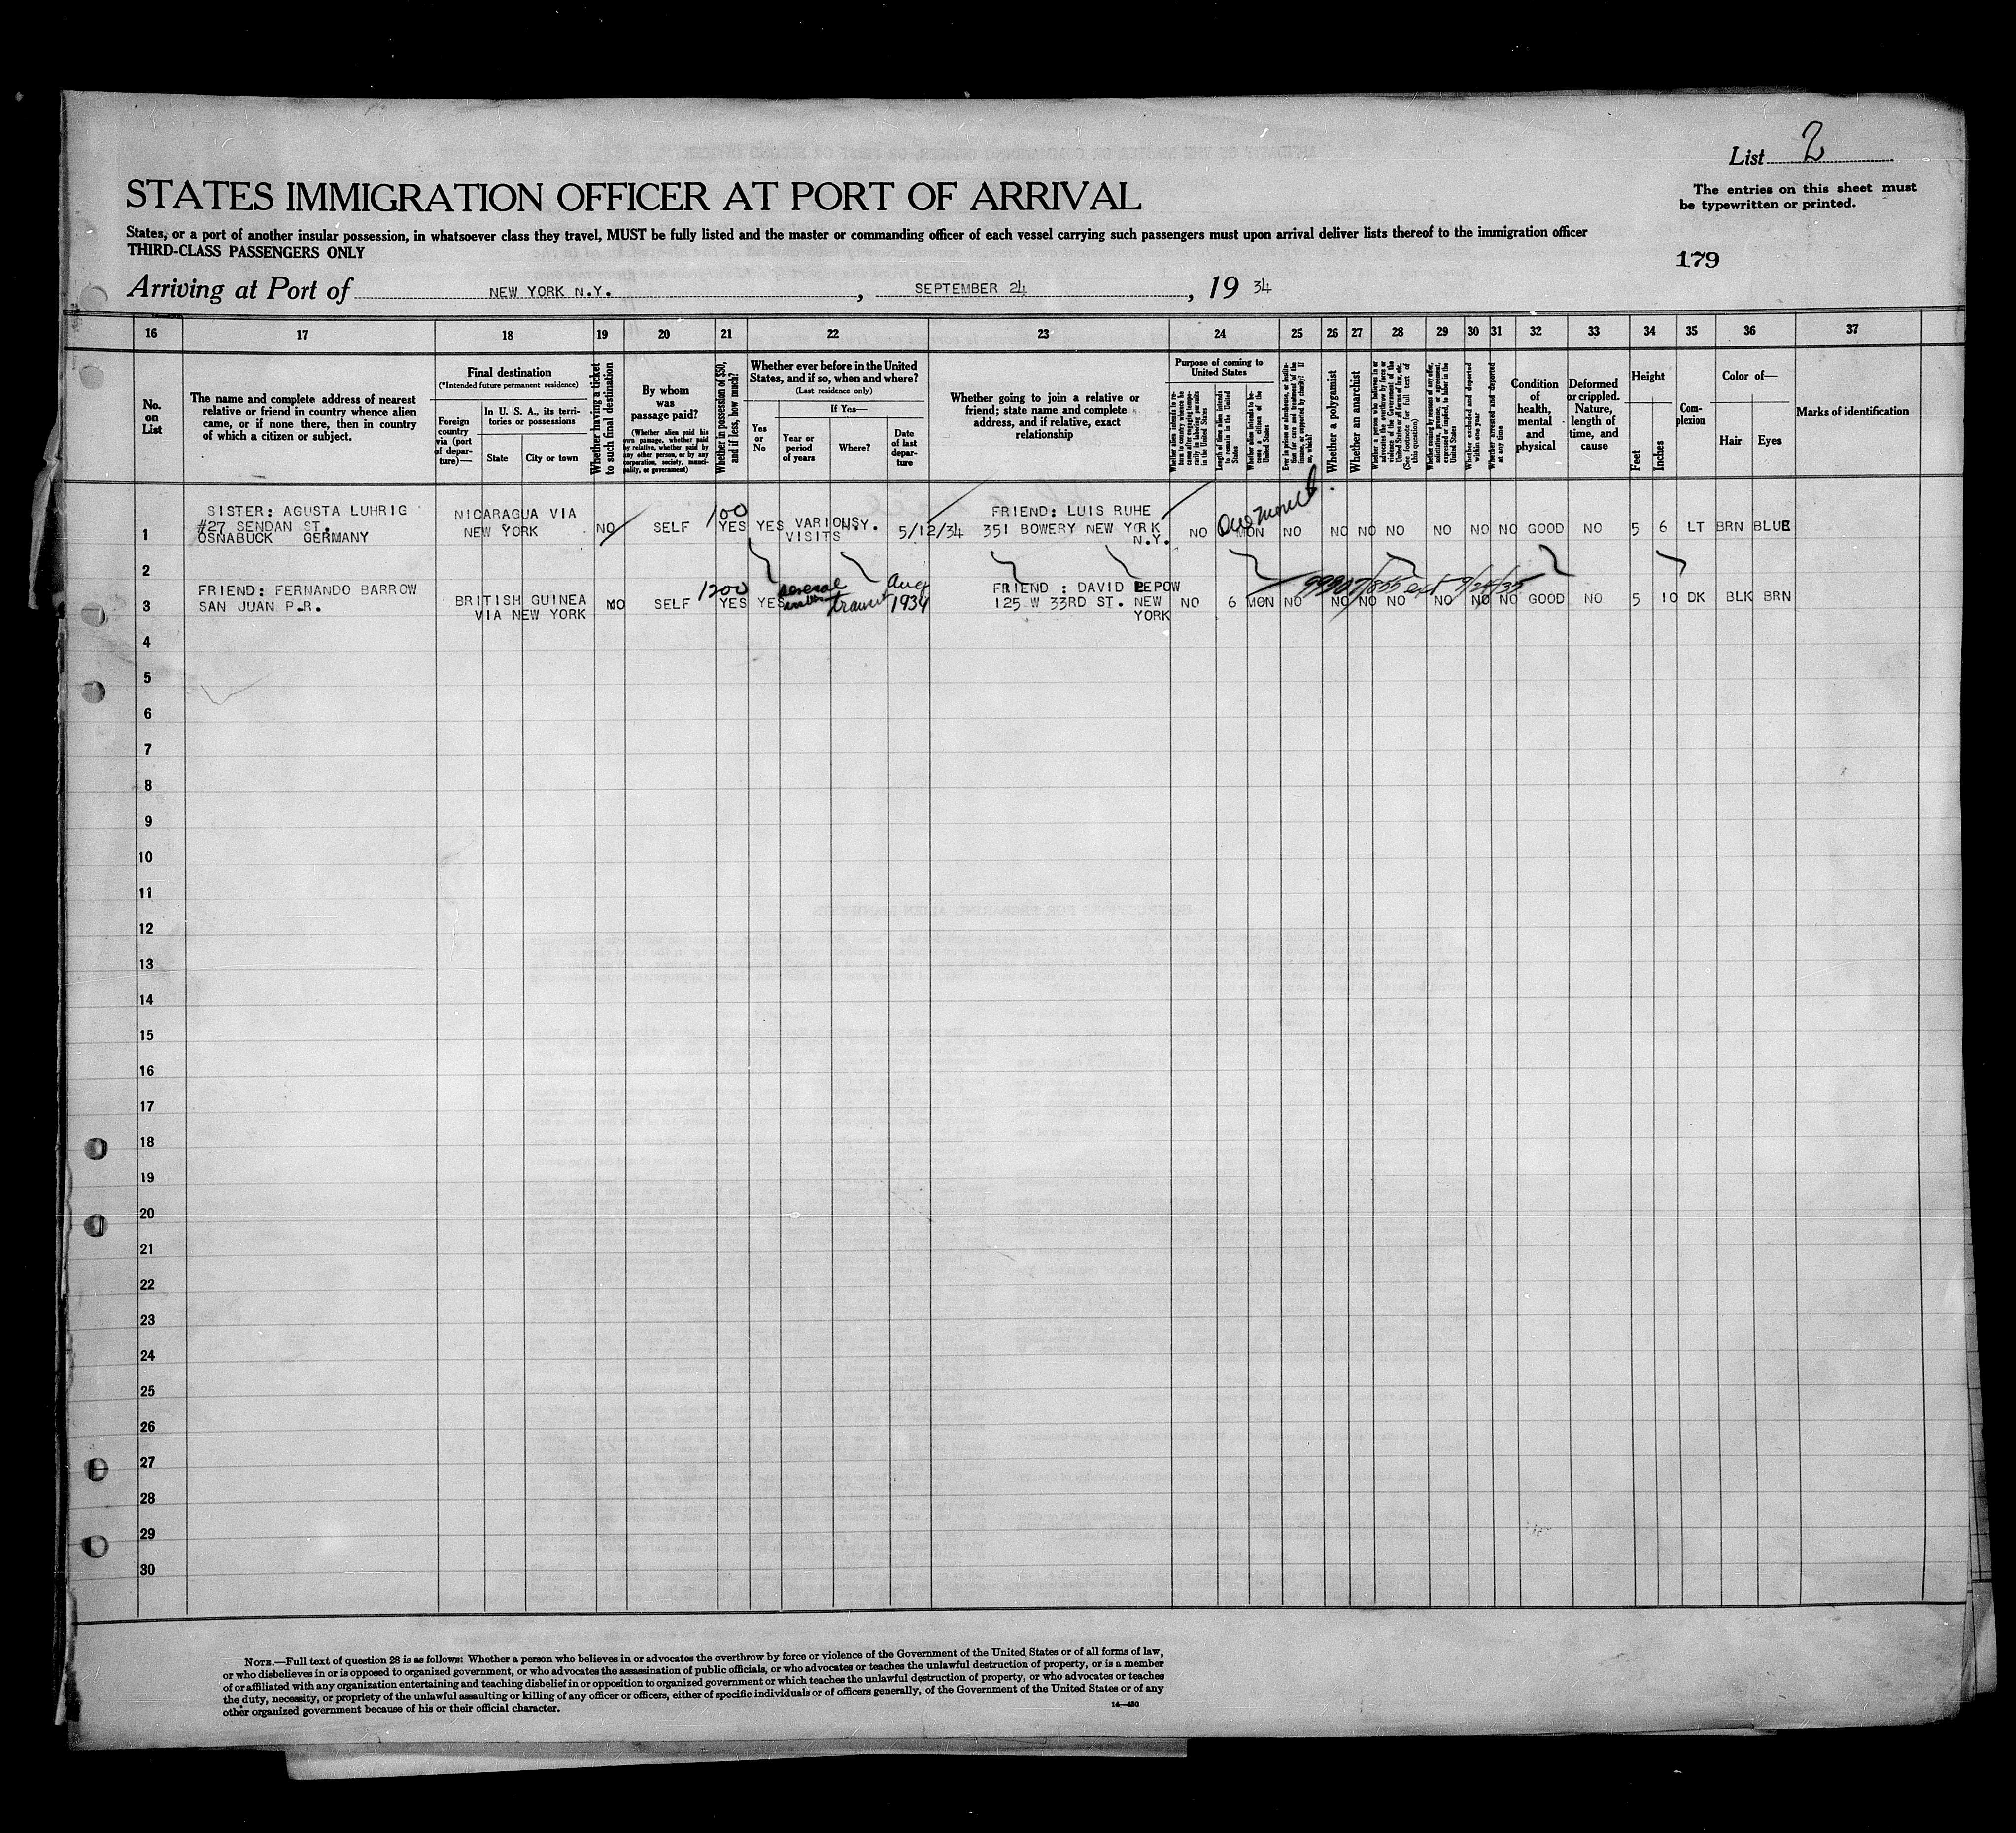 List 2
STATES IMMIGRATION OFFICER AT PORT OF ARRIVAL
The entries on this sheet must
be typewritten or printed.
States, or a port of another insular possession, in whatsoever class they travel, MUST be fully listed and the master or commanding officer of each vessel carrying such passengers must upon arrival deliver lists thereof to the immigration officer
THIRD-CLASS PASSENGERS ONLY
179
Arriving at Port of NEW YORK N.Y. , SEPTEMBER 24 , 19 34
16 17 18 19 20 21 22 23 24 25 26 27 28 29 30 31 32 33 34 35 36 37
No.
on
List
The name and complete address of nearest
relative or friend in country whence alien
came, or if none there, then in country
of which a citizen or subject.
Final destination
(*Intended future permanent residence)
Foreign
country
via (port
of depar-
ture)—
In U. S. A., its terri-
tories or possessions
State
City or town
Whether having a ticket
to such final destination
By whom
was
passage paid?
(Whether alien paid his
own passage, whether paid
by relative, whether paid by
any other person, or by any
corporation, society, munici-
pality, or government)
Whether in possession of $50,
and if less, how much?
Whether ever before in the United
States, and if so, when and where?
(Last residence only)
Yes
or
No
If Yes—
Year or
period
of years
Where?
Date
of last
depar-
ture
Whether going to join a relative or
friend; state name and complete
address, and if relative, exact
relationship
Purpose of coming to
United States
Whether alien intends to re-
turn to country whence he
came after engaging tempo-
rarily in laboring pursuits
in the United States
Length of time alien intends
to remain in the United
States
Whether alien intends to be-
come a citizen of the
United States
Ever in prison or almshouse, or institu-
tion for care and treatment of the
insane, or supported by charity? If
so, which?
Whether a polygamist
Whether an anarchist
Whether a person who believes in or
advocates the overthrow by force or
violence of the Government of the
United States or all forms of law, etc.
(See footnote for full text of
this question)
Whether coming by reason of any offer,
solicitation, promise, or agreement,
expressed or implied, to labor in the
United States
Whether excluded and deported
within one year
Whether arrested and deported
at any time
Condition
of
health,
mental
and
physical
Deformed
or crippled.
Nature,
length of
time, and
cause
Height
Feet
Inches
Com-
plexion
Color of—
Hair
Eyes
Marks of identification
1
SISTER: AGUSTA LUHRIG
#27 SENDAN ST.
OSNABUCK GERMANY
NICARAGUA VIA
NEW YORK
NO SELF 100 YES YES VARIOUS
VISITS
N.Y. 5/12/34
FRIEND: LUIS RUHE
351 BOWERY NEW YORK
N.Y.
NO One month MON NO NO NO NO NO NO NO GOOD NO 5 6 LT BRN BLUE
2
3
FRIEND: FERNANDO BARROW
SAN JUAN P.R.
BRITISH GUINEA
VIA NEW YORK
NO SELF 1200 YES YES several transit Aug
1934
FRIEND : DAVID PEPOW
125 W 33RD ST. NEW
YORK
NO 6 MON NO NO NO NO NO NO NO GOOD NO 5 10 DK BLK BRN
4
5
6
7
8
9
10
11
12
13
14
15
16
17
18
19
20
21
22
23
24
25
26
27
28
29
30
NOTE.—Full text of question 28 is as follows: Whether a person who believes in or advocates the overthrow by force or violence of the Government of the United States or of all forms of law,
or who disbelieves in or is opposed to organized government, or who advocates the assassination of public officials, or who advocates or teaches the unlawful destruction of property, or is a member
of or affiliated with any organization entertaining and teaching disbelief in or opposition to organized government or which teaches the unlawful destruction of property, or who advocates or teaches
the duty, necessity, or propriety of the unlawful assaulting or killing of any officer or officers, either of specific individuals or of officers generally, of the Government of the United States or of any
other organized government because of his or their official character.
14—430